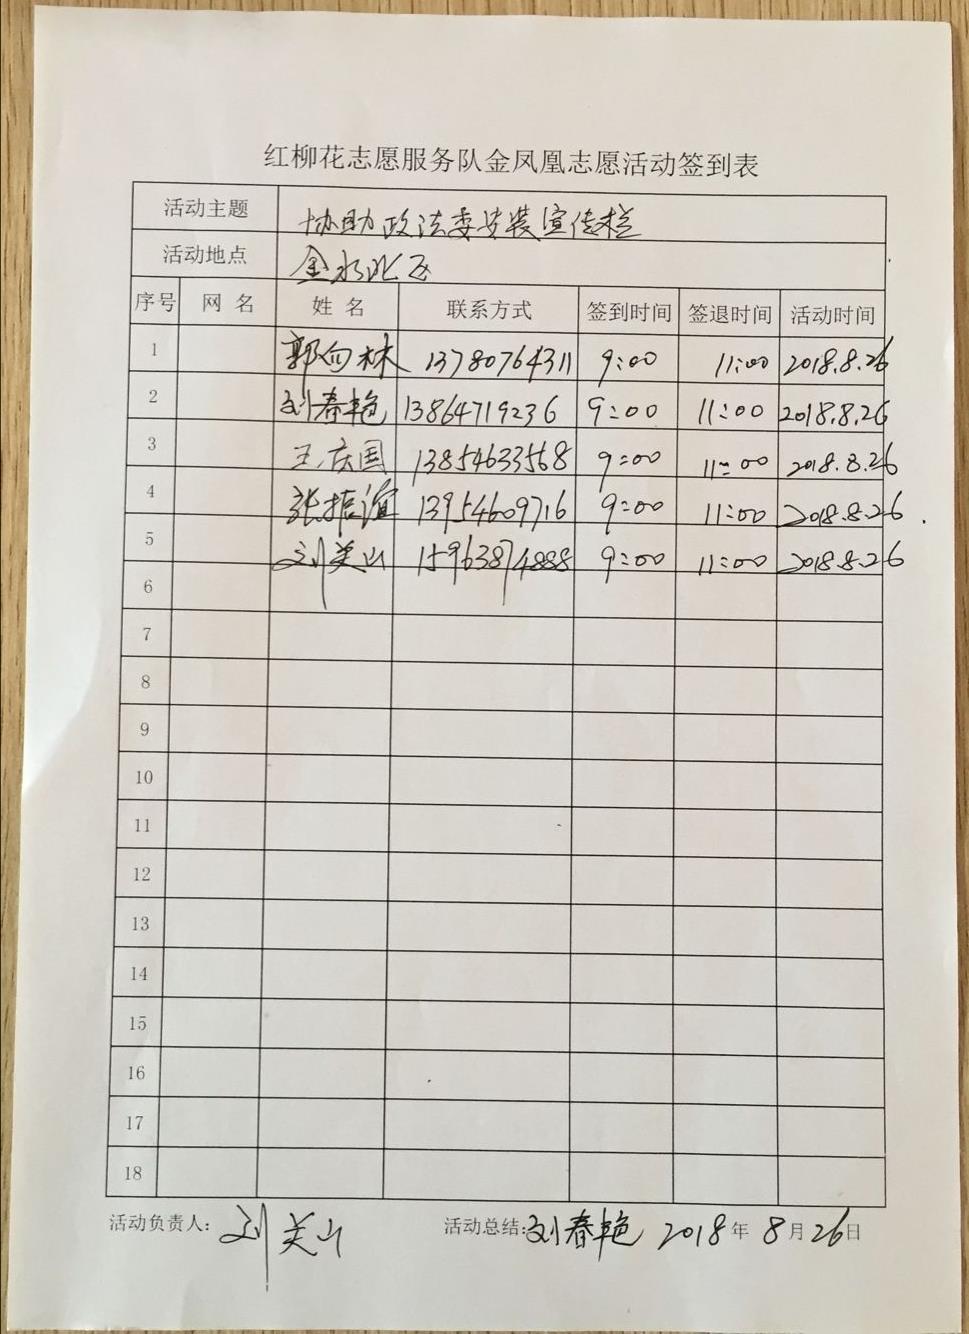 红柳花志愿服务队金凤凰志愿活动签到表
活动主题 协助政法委安装宣传栏
活动地点 金水北区
序号 网名 姓名 联系方式 签到时间 签退时间 活动时间
1 郭向林 13780764311 9:00 11:00 2018.8.26
2 刘春艳 13864719236 9:00 11:00 2018.8.26
3 王庆国 13854633568 9:00 11:00 2018.8.26
4 张振谊 13954609716 9:00 11:00 2018.8.26
5 刘美山 15963874888 9:00 11:00 2018.8.26
6
7
8
9
10
11
12
13
14
15
16
17
18
活动负责人: 刘美山 活动总结: 刘春艳 2018年8月26日